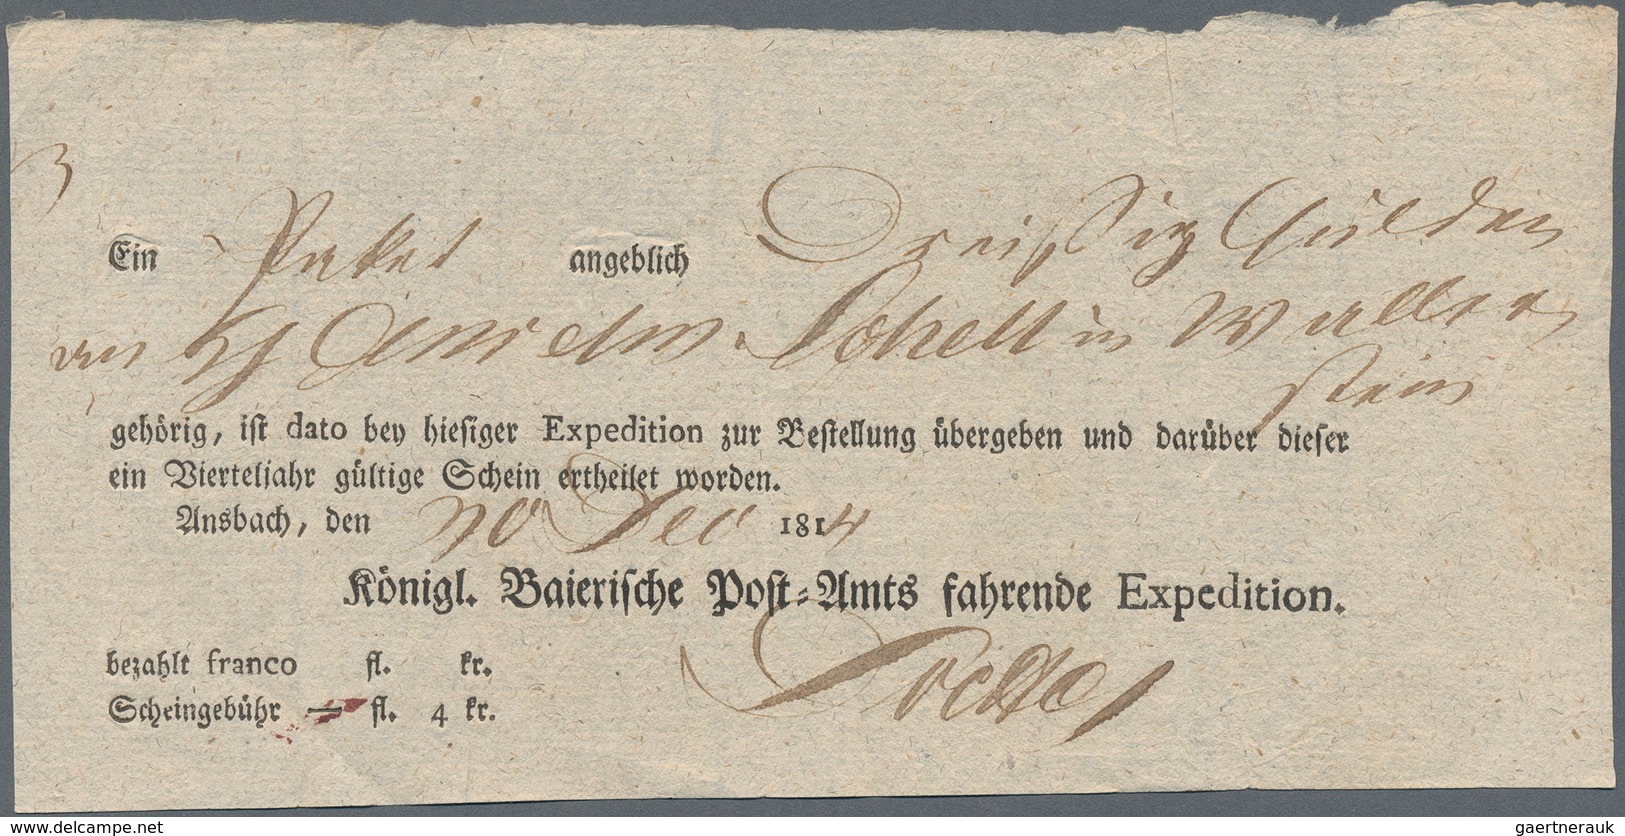 Ein Paket angeblich Dreißig Gulden
an H Schell in Waller
stein
gehörig, ist dato bey hiesiger Expedition zur Bestellung übergeben und darüber dieser
ein Vierteljahr gültige Schein ertheilet worden.
Ansbach, den Dec 1814
Königl. Baierische Post-Amts fahrende Expedition.
bezahlt franco fl. kr.
Scheingebühr — fl. 4 kr.
www.delcampe.net
gaertnerauk